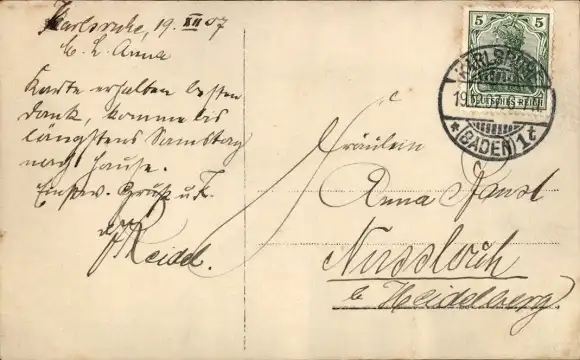 Karlsruhe, 19. XII 07
M. L. Anna
Karte erhalten besten
Dank, komme bis
längstens Samstag
nach Hause.
Einstw. Gruß u. K.
Reidel.
Fräulein
Anna
Nussloch
b. Heidelberg.
5 5
DEUTSCHES REICH
KARLSRUHE
19
(BADEN) 1t